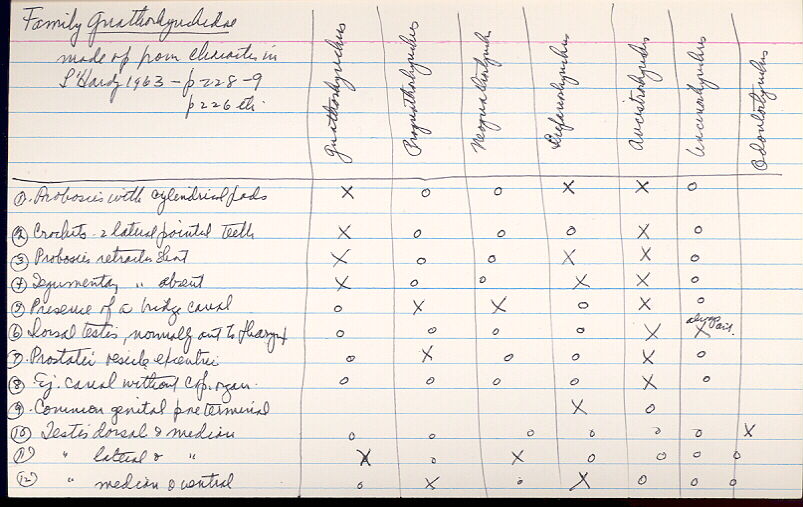 Family Gnathorhynchidae
made up from characters in
L'Hardy 1963 – p 228-9
p 226 etc.
Gnathorhynchus
Prognathorhynchus
Neognathorhynchus
Uncinorhynchus
Odontorhynchus
① Proboscis with cylindrical pads X o o X X o
② Crochets - 2 lateral pointed teeth X o o o X o
③ Proboscis retractors X o o X X o
④ Tegumentary " absent X o o X X o
⑤ Presence of a bridge canal o X X o X o
⑥ Dorsal testis, normally ant to pharynx o o o o X X always ant.
⑦ Prostatic vesicle o X o o X o
⑧ Ej. canal without cop. organ. o o o o X o
⑨ Common genital pore terminal X o
⑩ Testis dorsal & median o o o o o o X
⑪ " lateral & " X o X o o o o
⑫ " median & ventral o X o X o o o